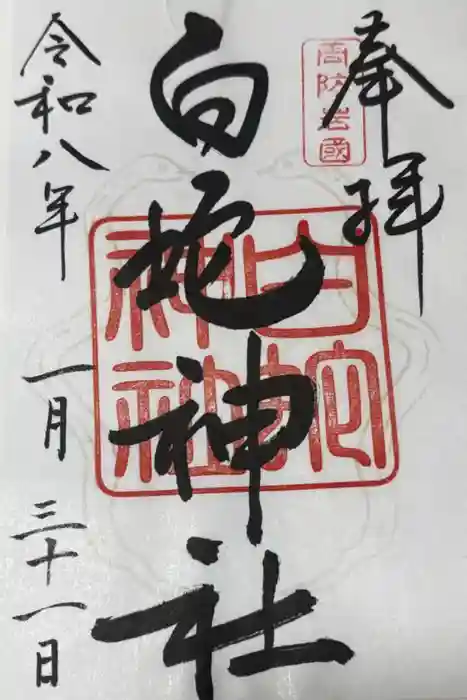 奉拝
周防岩國
白蛇神社
白蛇神社
令和八年
一月
三十一日